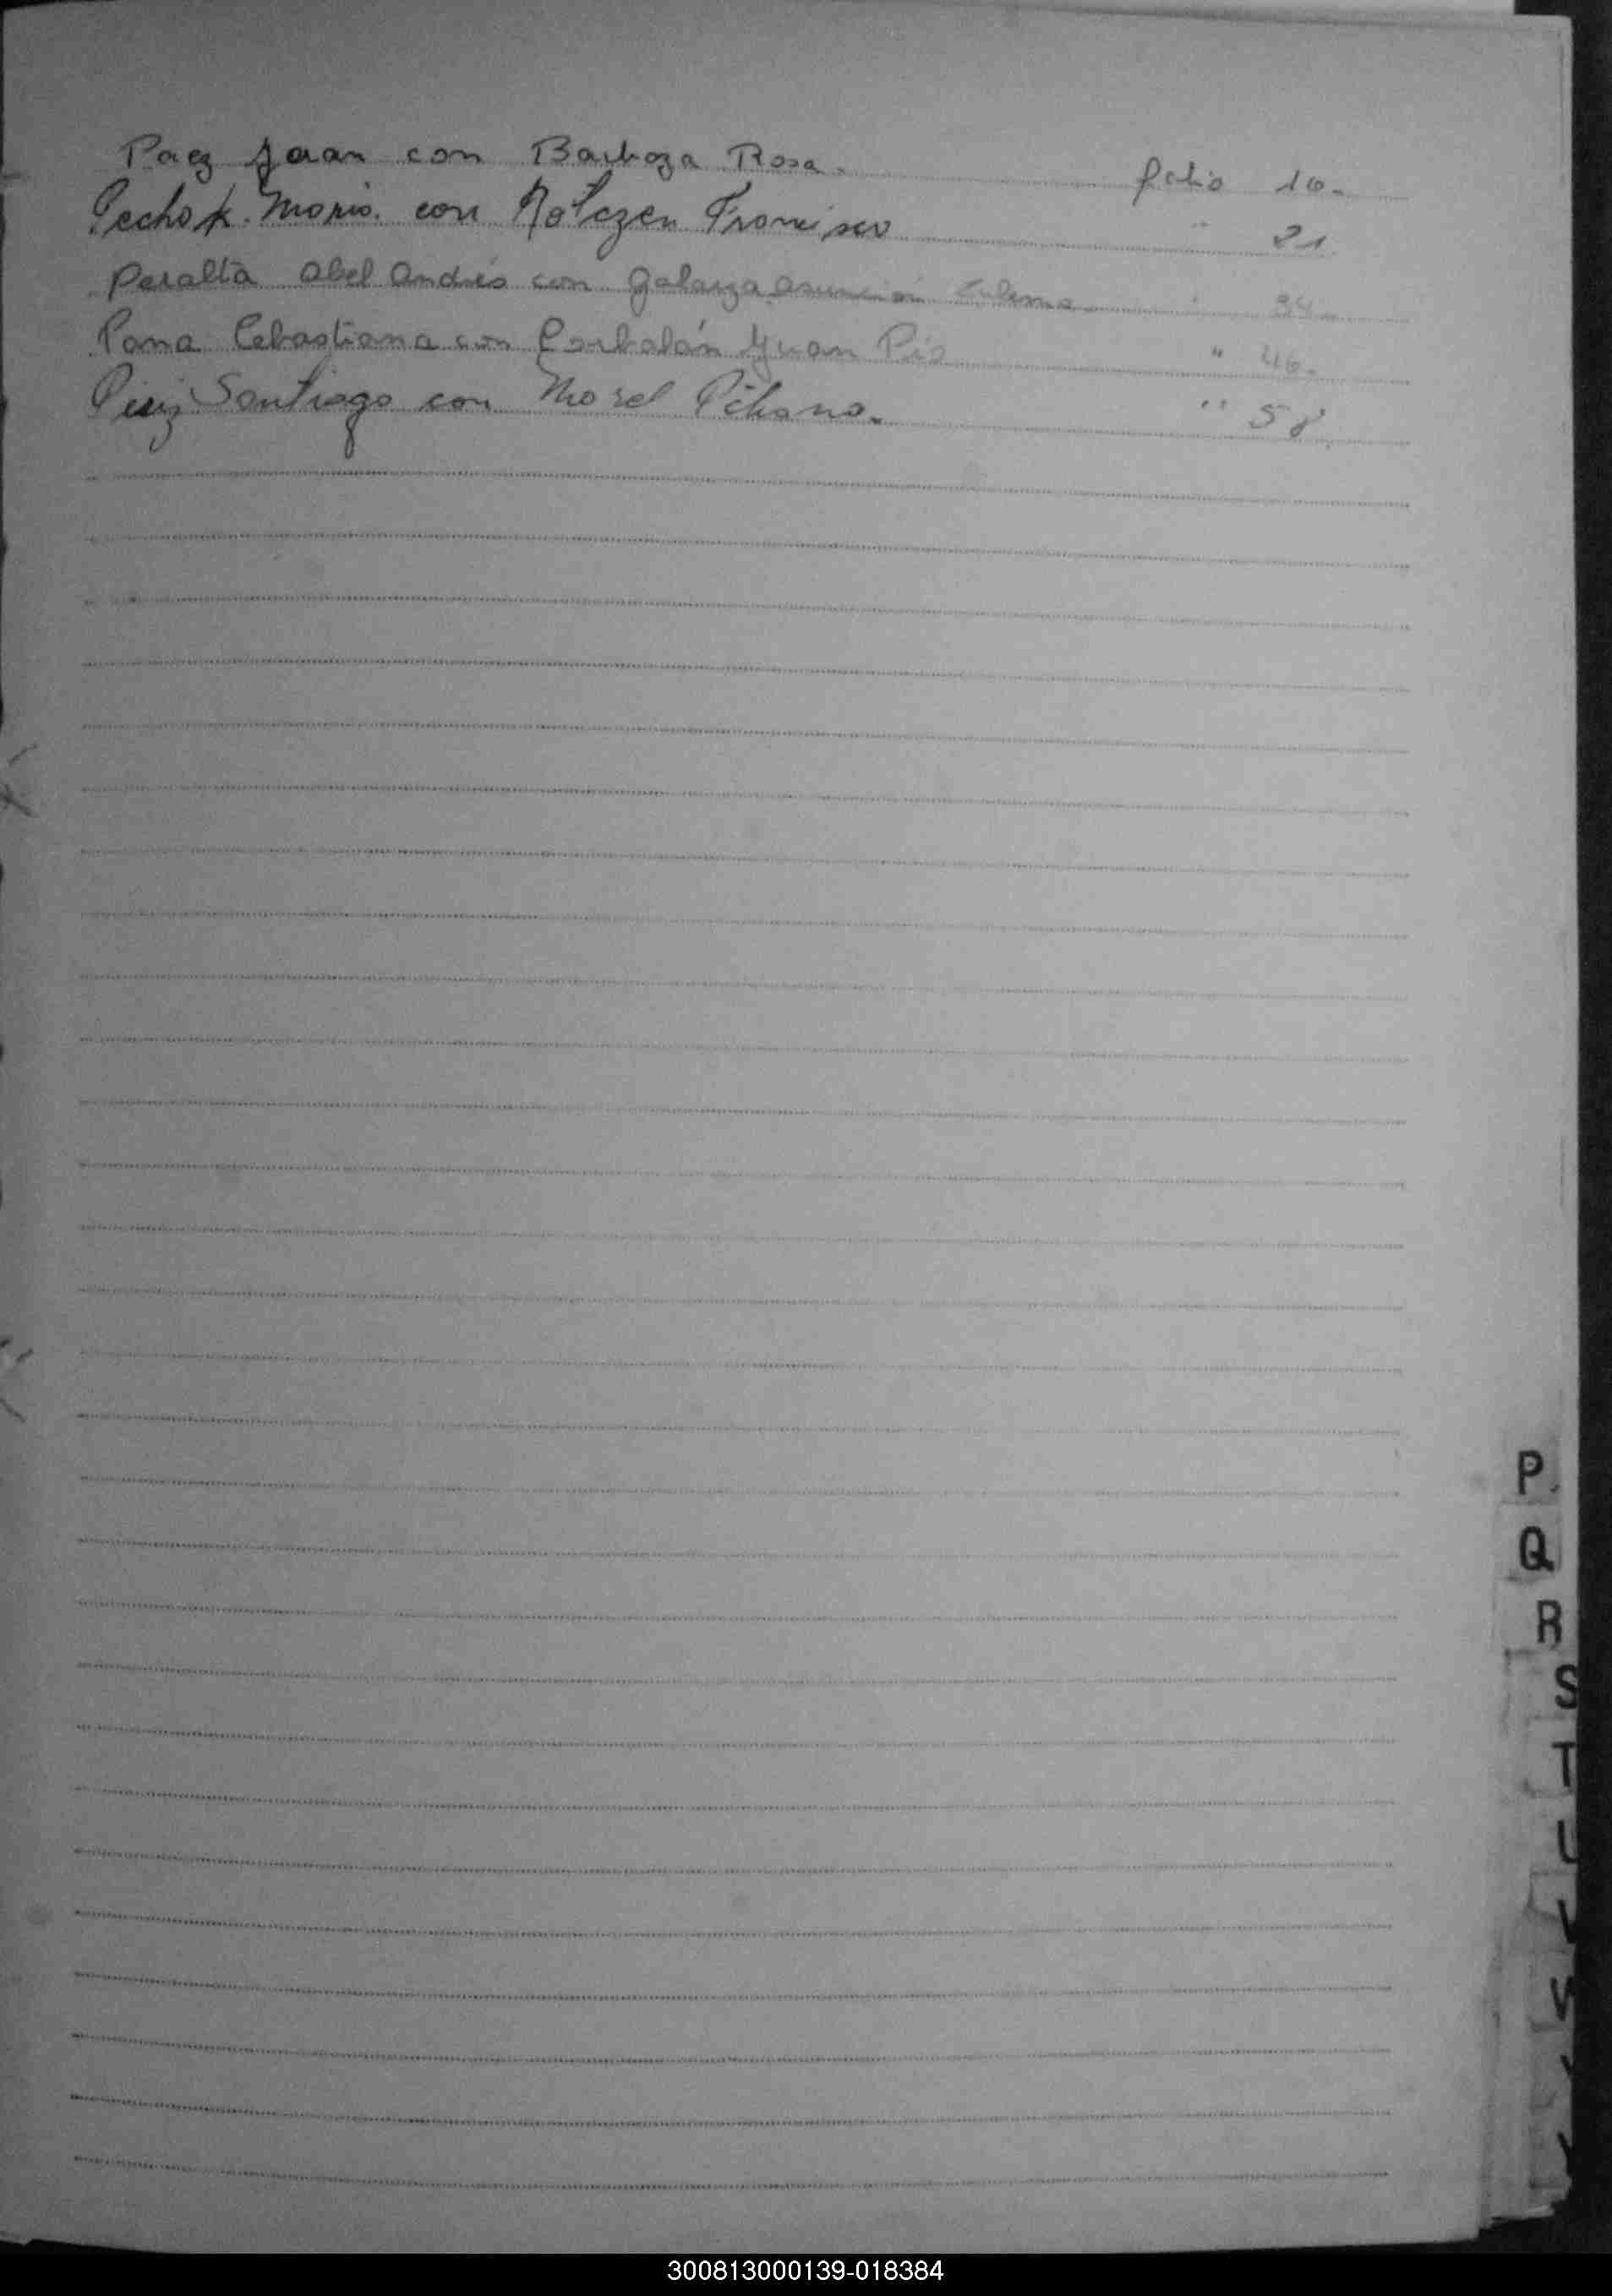 Paez Juan con Barboza Rosa. folio 10.
Pechok Maria. con Rolczen Francisco " 21
Peralta Abel Andrés con Galarza Asunción Zulema " 34
Pana Cebastiana con Corbalán Juan Pio " 46.
Piriz Santiago con Morel " 58.
P
Q
R
S
T
U
V
300813000139-018384